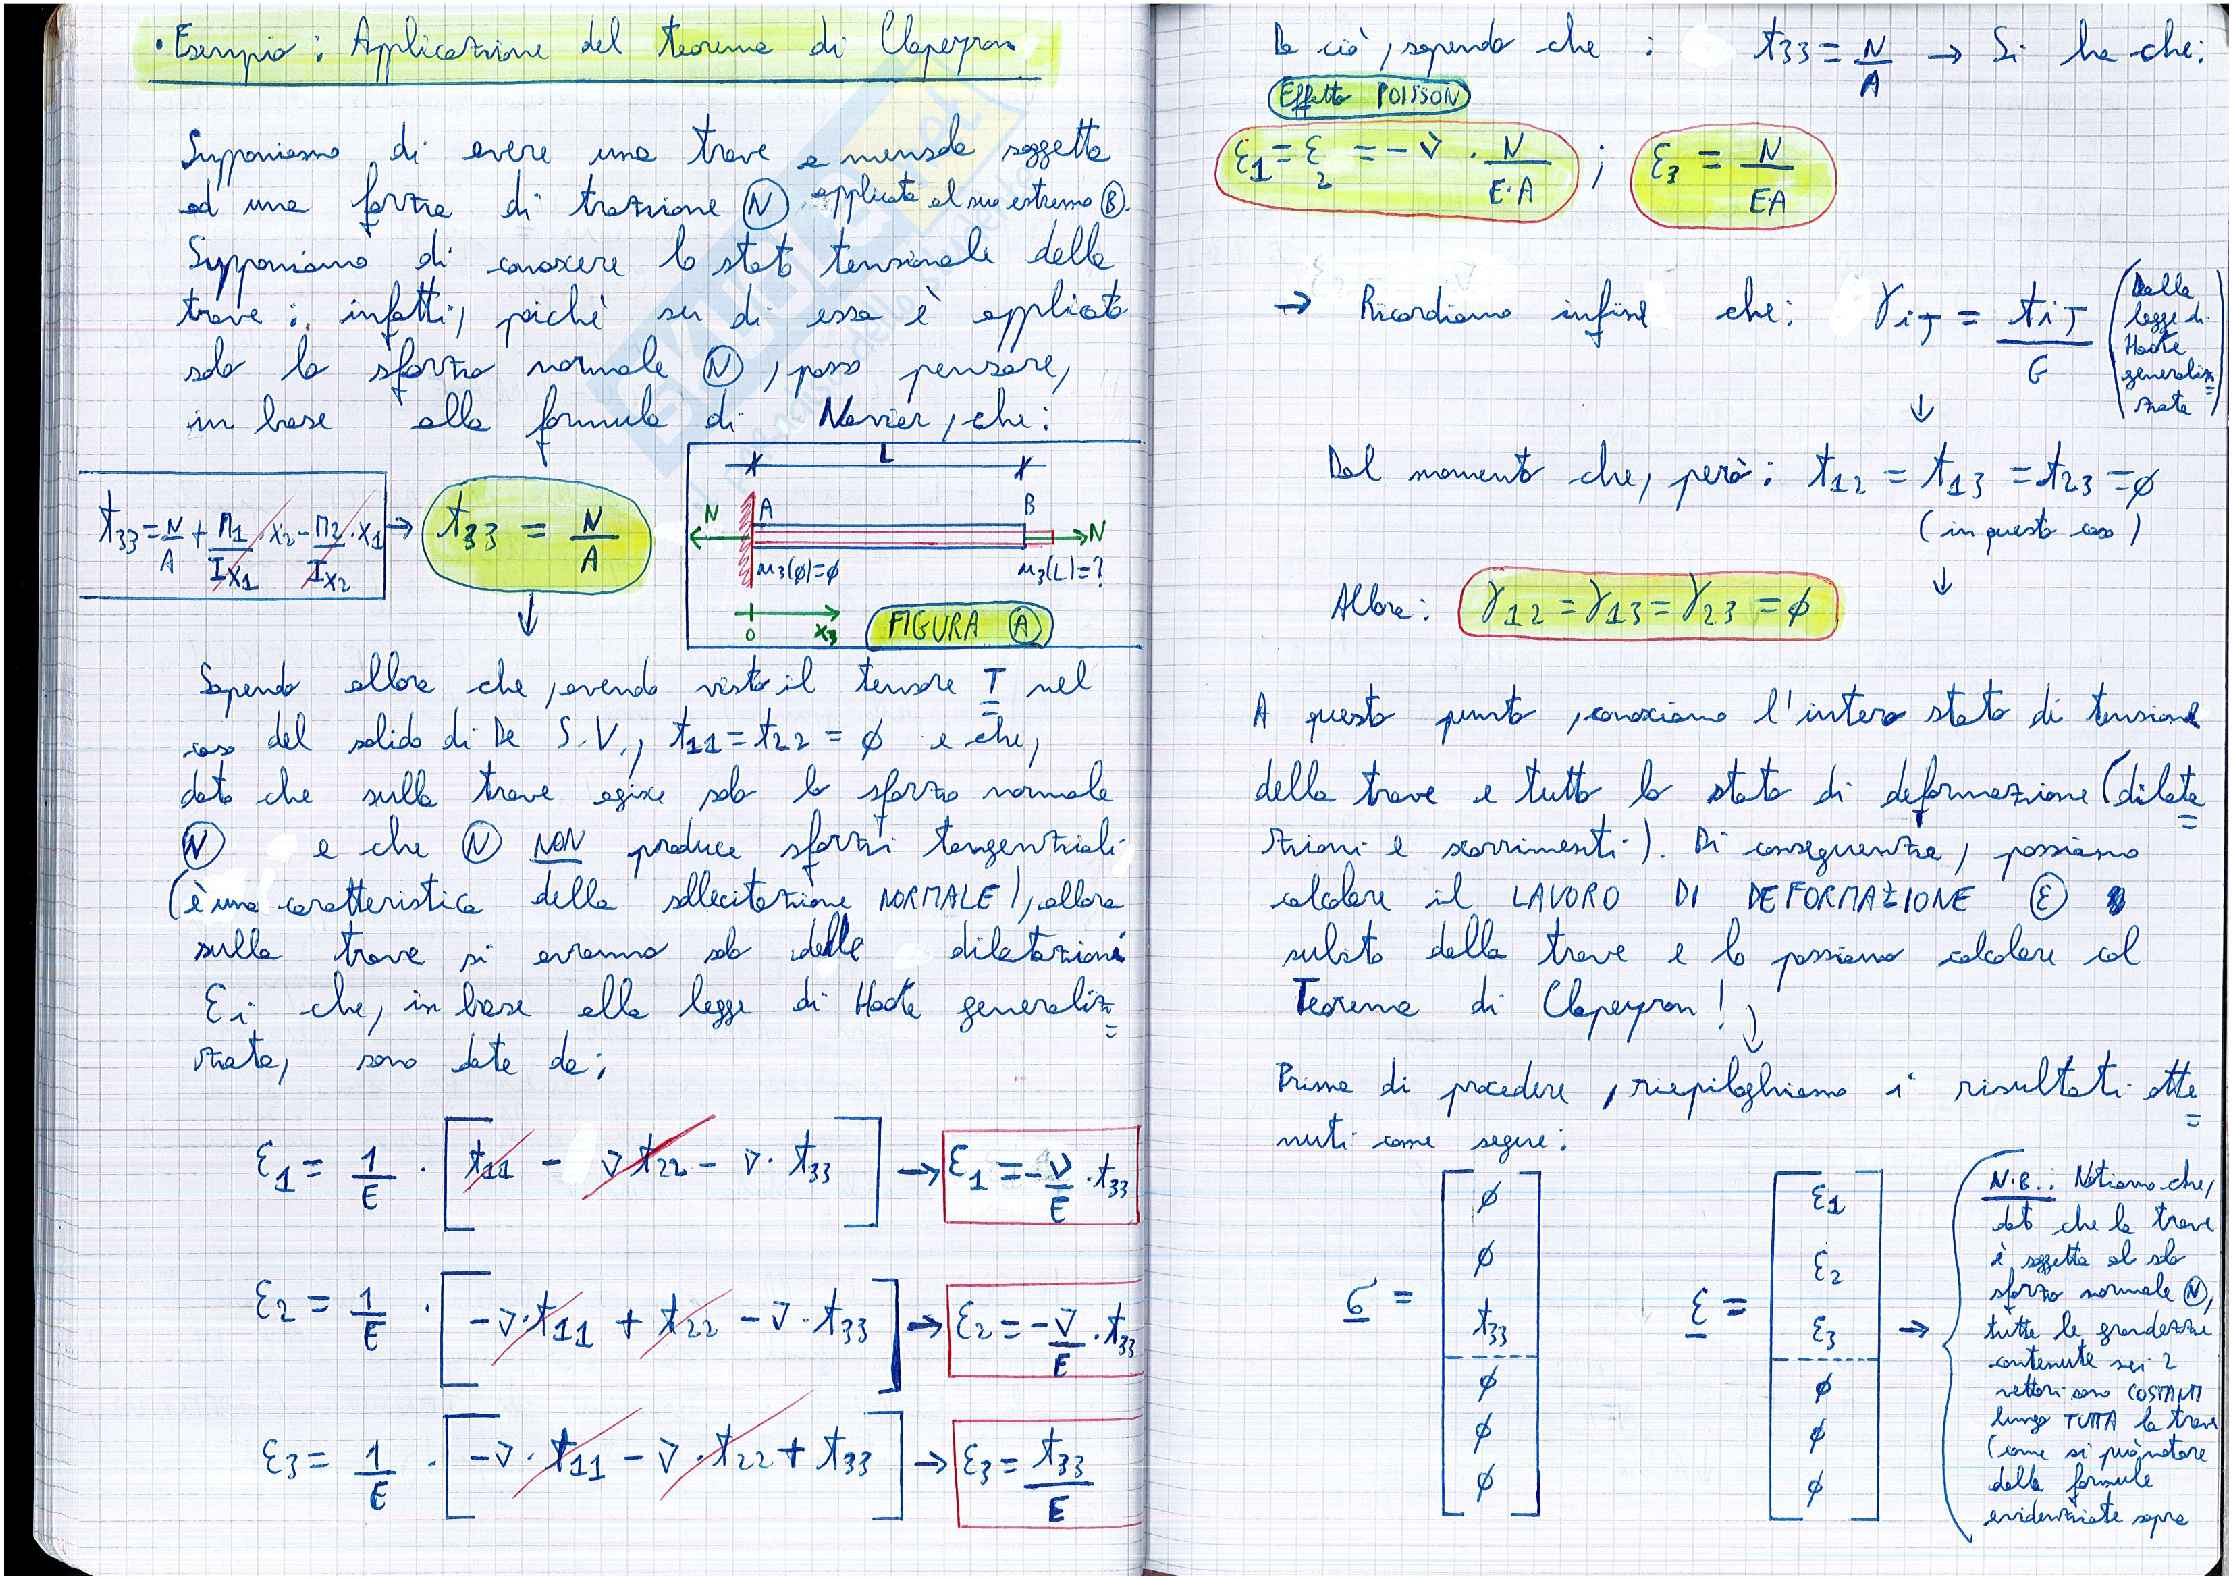 • Esempio: Applicazione del teorema di Clapeyron
Supponiamo di avere una trave a mensola soggetta
ad una forza di trazione N applicata al suo estremo B.
Supponiamo di conoscere lo stato tensionale della
trave: infatti, poichè su di essa è applicato
solo lo sforzo normale N, posso pensare,
in base alla formula di Navier, che:
t33 = N/A + M1/Ix1 · x2 - M2/Ix2 · x1 → t33 = N/A
L
N A B N
u3(ø)=ø u3(L)=?
0 x3 FIGURA A
Sapendo allora che, avendo visto il tensore T nel
caso del solido di De S.V., t11 = t22 = ø e che,
dato che sulla trave agisce solo lo sforzo normale
N e che N NON produce sforzi tangenziali
(è una caratteristica della sollecitazione NORMALE), allora
sulla trave si avranno solo delle dilatazioni
Ei che, in base alla legge di Hooke generaliz=
zata, sono date da:
ε1 = 1/E · [t11 - νt22 - ν· t33] → ε1 = -ν/E · t33
ε2 = 1/E · [-ν·t11 + t22 - ν· t33] → ε2 = -ν/E · t33
ε3 = 1/E · [-ν· t11 - ν· t22 + t33] → ε3 = t33/E
Da ciò, sapendo che: t33 = N/A → Si ha che:
Effetto POISSON
ε1 = ε2 = -ν · N/E·A ; ε3 = N/EA
→ Ricordiamo infine che: γiJ = tiJ/G (Dalla
legge di
Hooke
generaliz=
zata)
↓
Dal momento che, però: t12 = t13 = t23 = ø
(in questo caso)
↓
Allora: γ12 = γ13 = γ23 = ø
A questo punto, conosciamo l'intero stato di tensione
della trave e tutto lo stato di deformazione (dilata=
zioni e scorrimenti). Di conseguenza, possiamo
calcolare il LAVORO DI DEFORMAZIONE E
subito dalla trave e lo possiamo calcolare col
Teorema di Clapeyron!
Prima di procedere, riepiloghiamo i risultati otte=
nuti come segue:
σ = [ø ø t33 ø ø ø]
ε = [ε1 ε2 ε3 ø ø ø] →
(N.B.: Notiamo che,
dato che la trave
è soggetta al solo
sforzo normale N,
tutte le grandezze
contenute nei 2
vettori sono COSTANTI
lungo TUTTA la trave
(come si può notare
dalle formule
evidenziate sopra